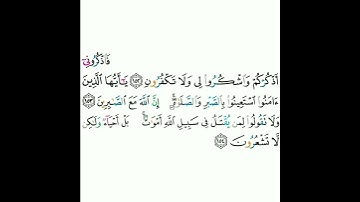 فَاذْكُرُونِي
أَذْكُرْكُمْ وَاشْكُرُوا لِي وَلَا تَكْفُرُونِ ١٥٢ يَٰٓأَيُّهَا الَّذِينَ
ءَامَنُوا اسْتَعِينُوا بِالصَّبْرِ وَالصَّلَوٰةِ إِنَّ اللَّهَ مَعَ الصَّٰبِرِينَ ١٥٣
وَلَا تَقُولُوا لِمَن يُقْتَلُ فِي سَبِيلِ اللَّهِ أَمْوَٰتٌ بَلْ أَحْيَآءٌ وَلَٰكِن
لَّا تَشْعُرُونَ ١٥٤